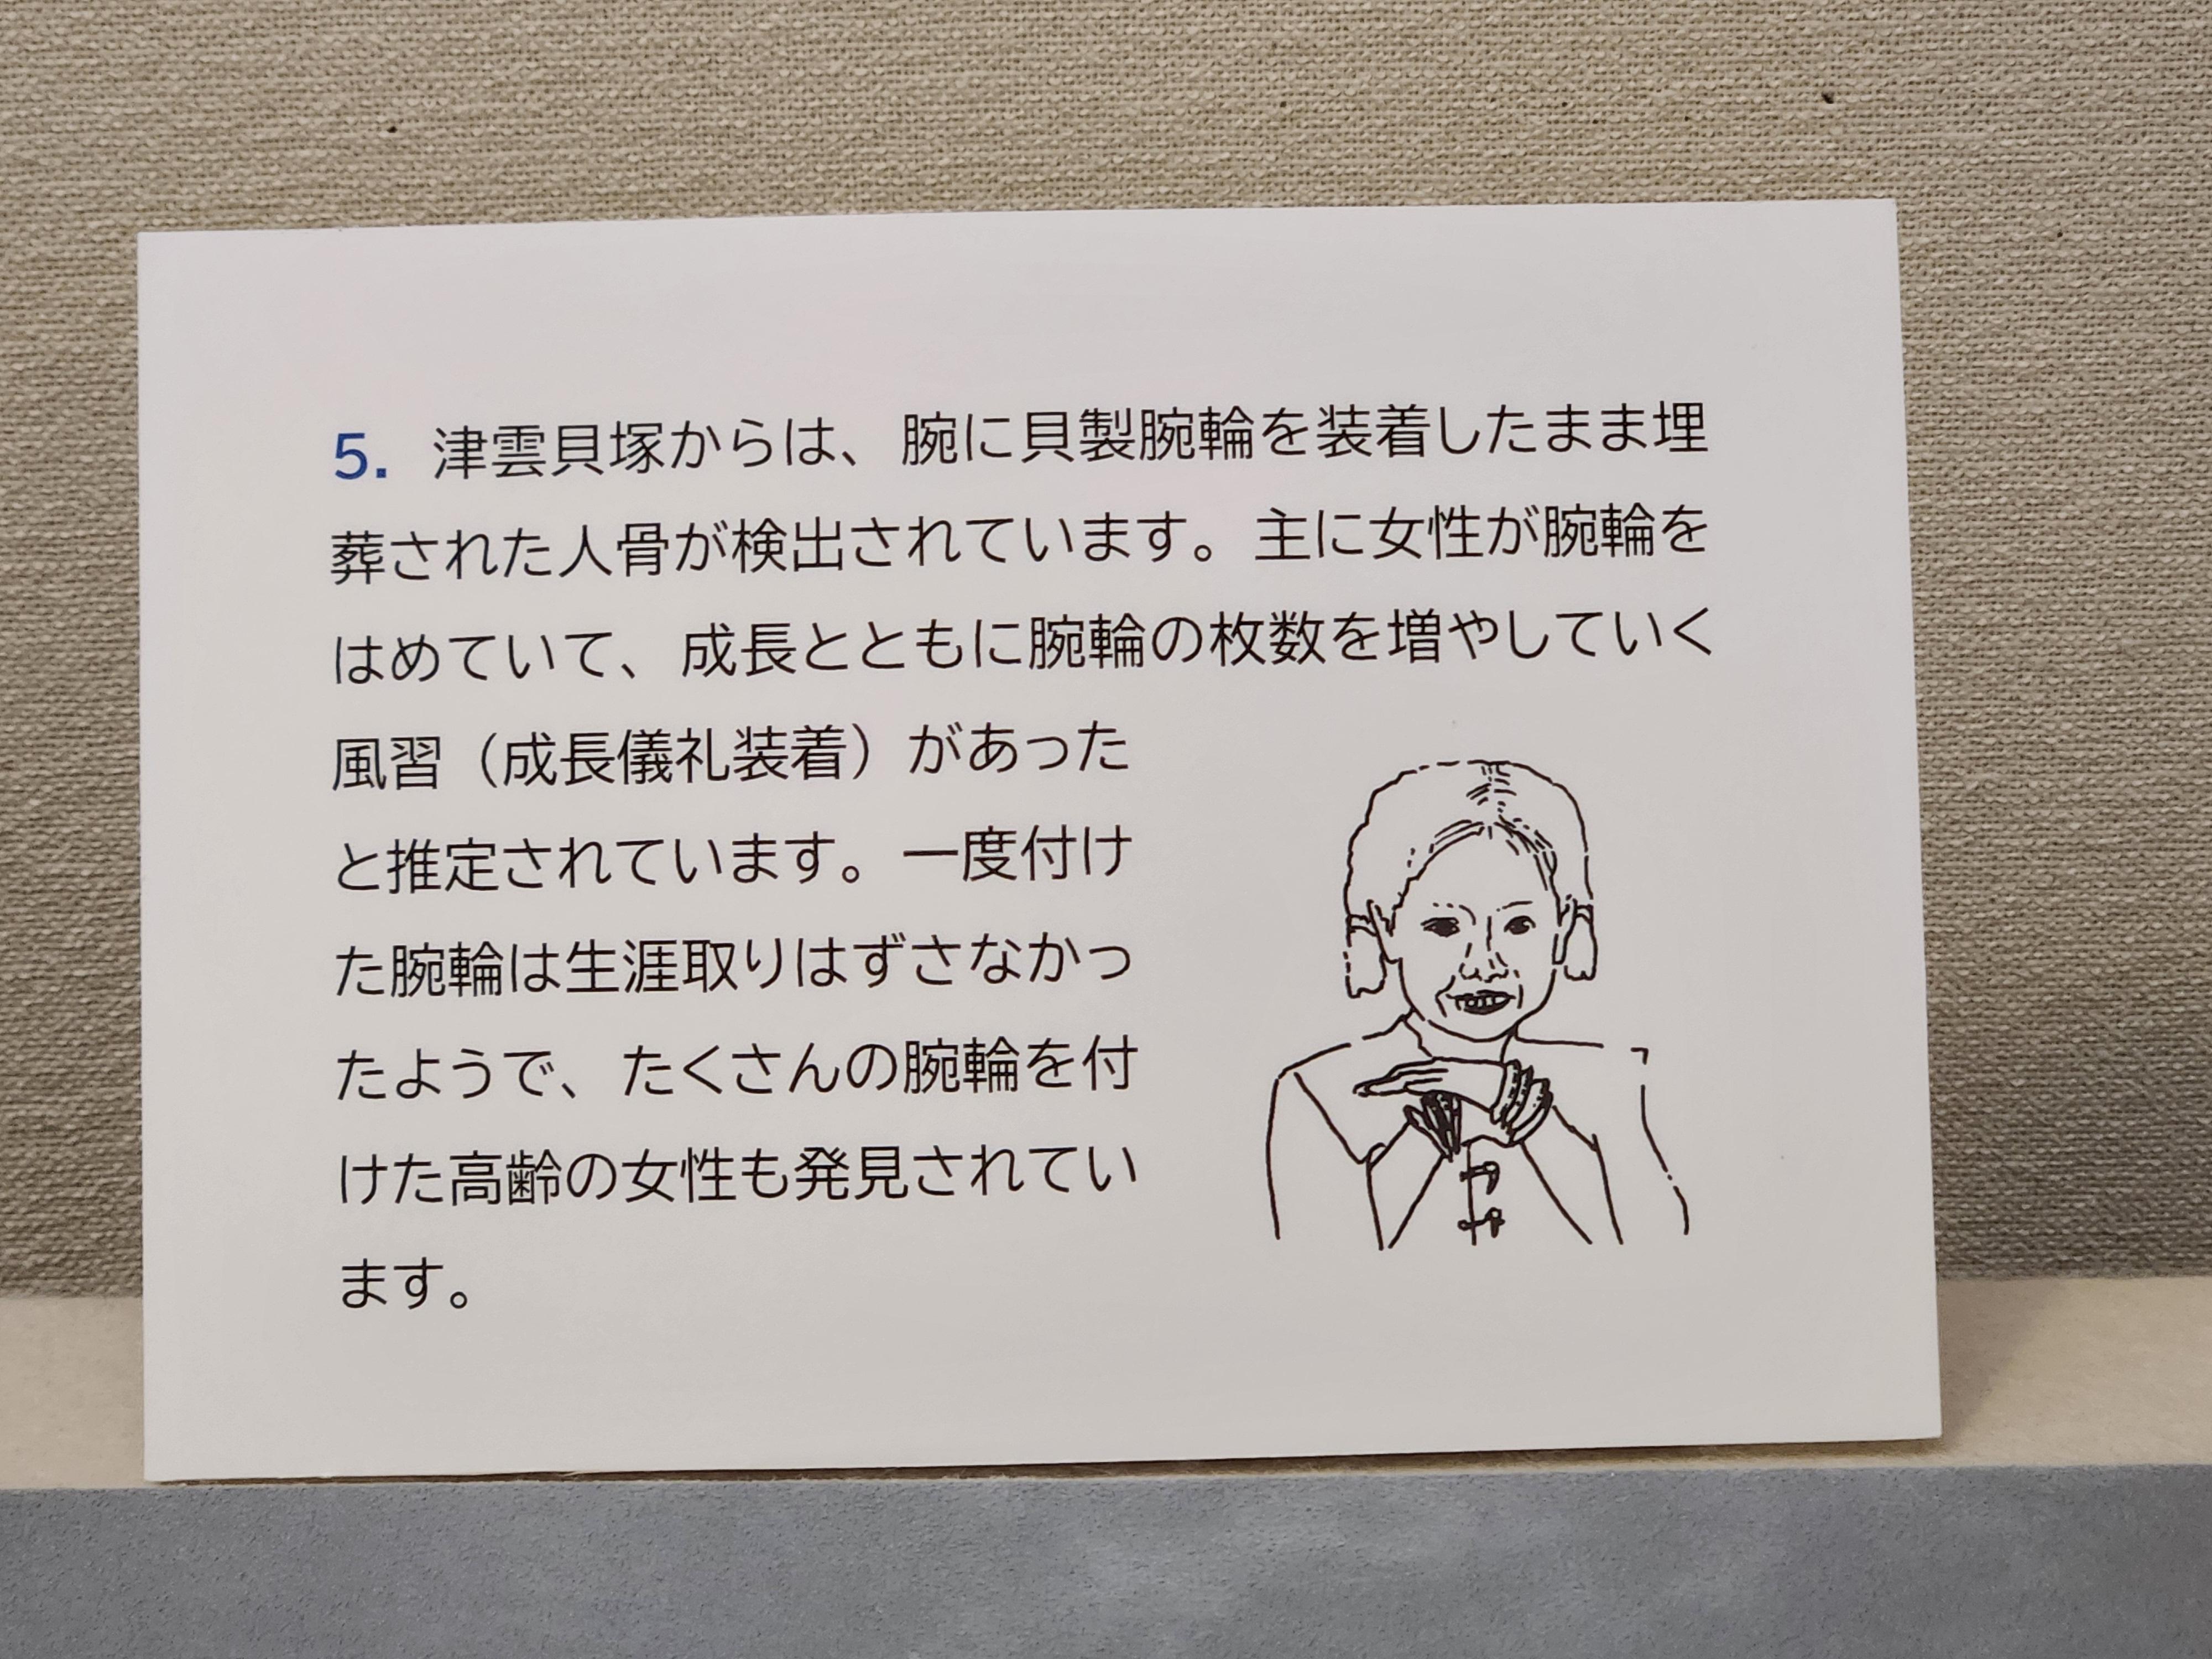 5. 津雲貝塚からは、腕に貝製腕輪を装着したまま埋
葬された人骨が検出されています。主に女性が腕輪を
はめていて、成長とともに腕輪の枚数を増やしていく
風習（成長儀礼装着）があった
と推定されています。一度付け
た腕輪は生涯取りはずさなかっ
たようで、たくさんの腕輪を付
けた高齢の女性も発見されてい
ます。